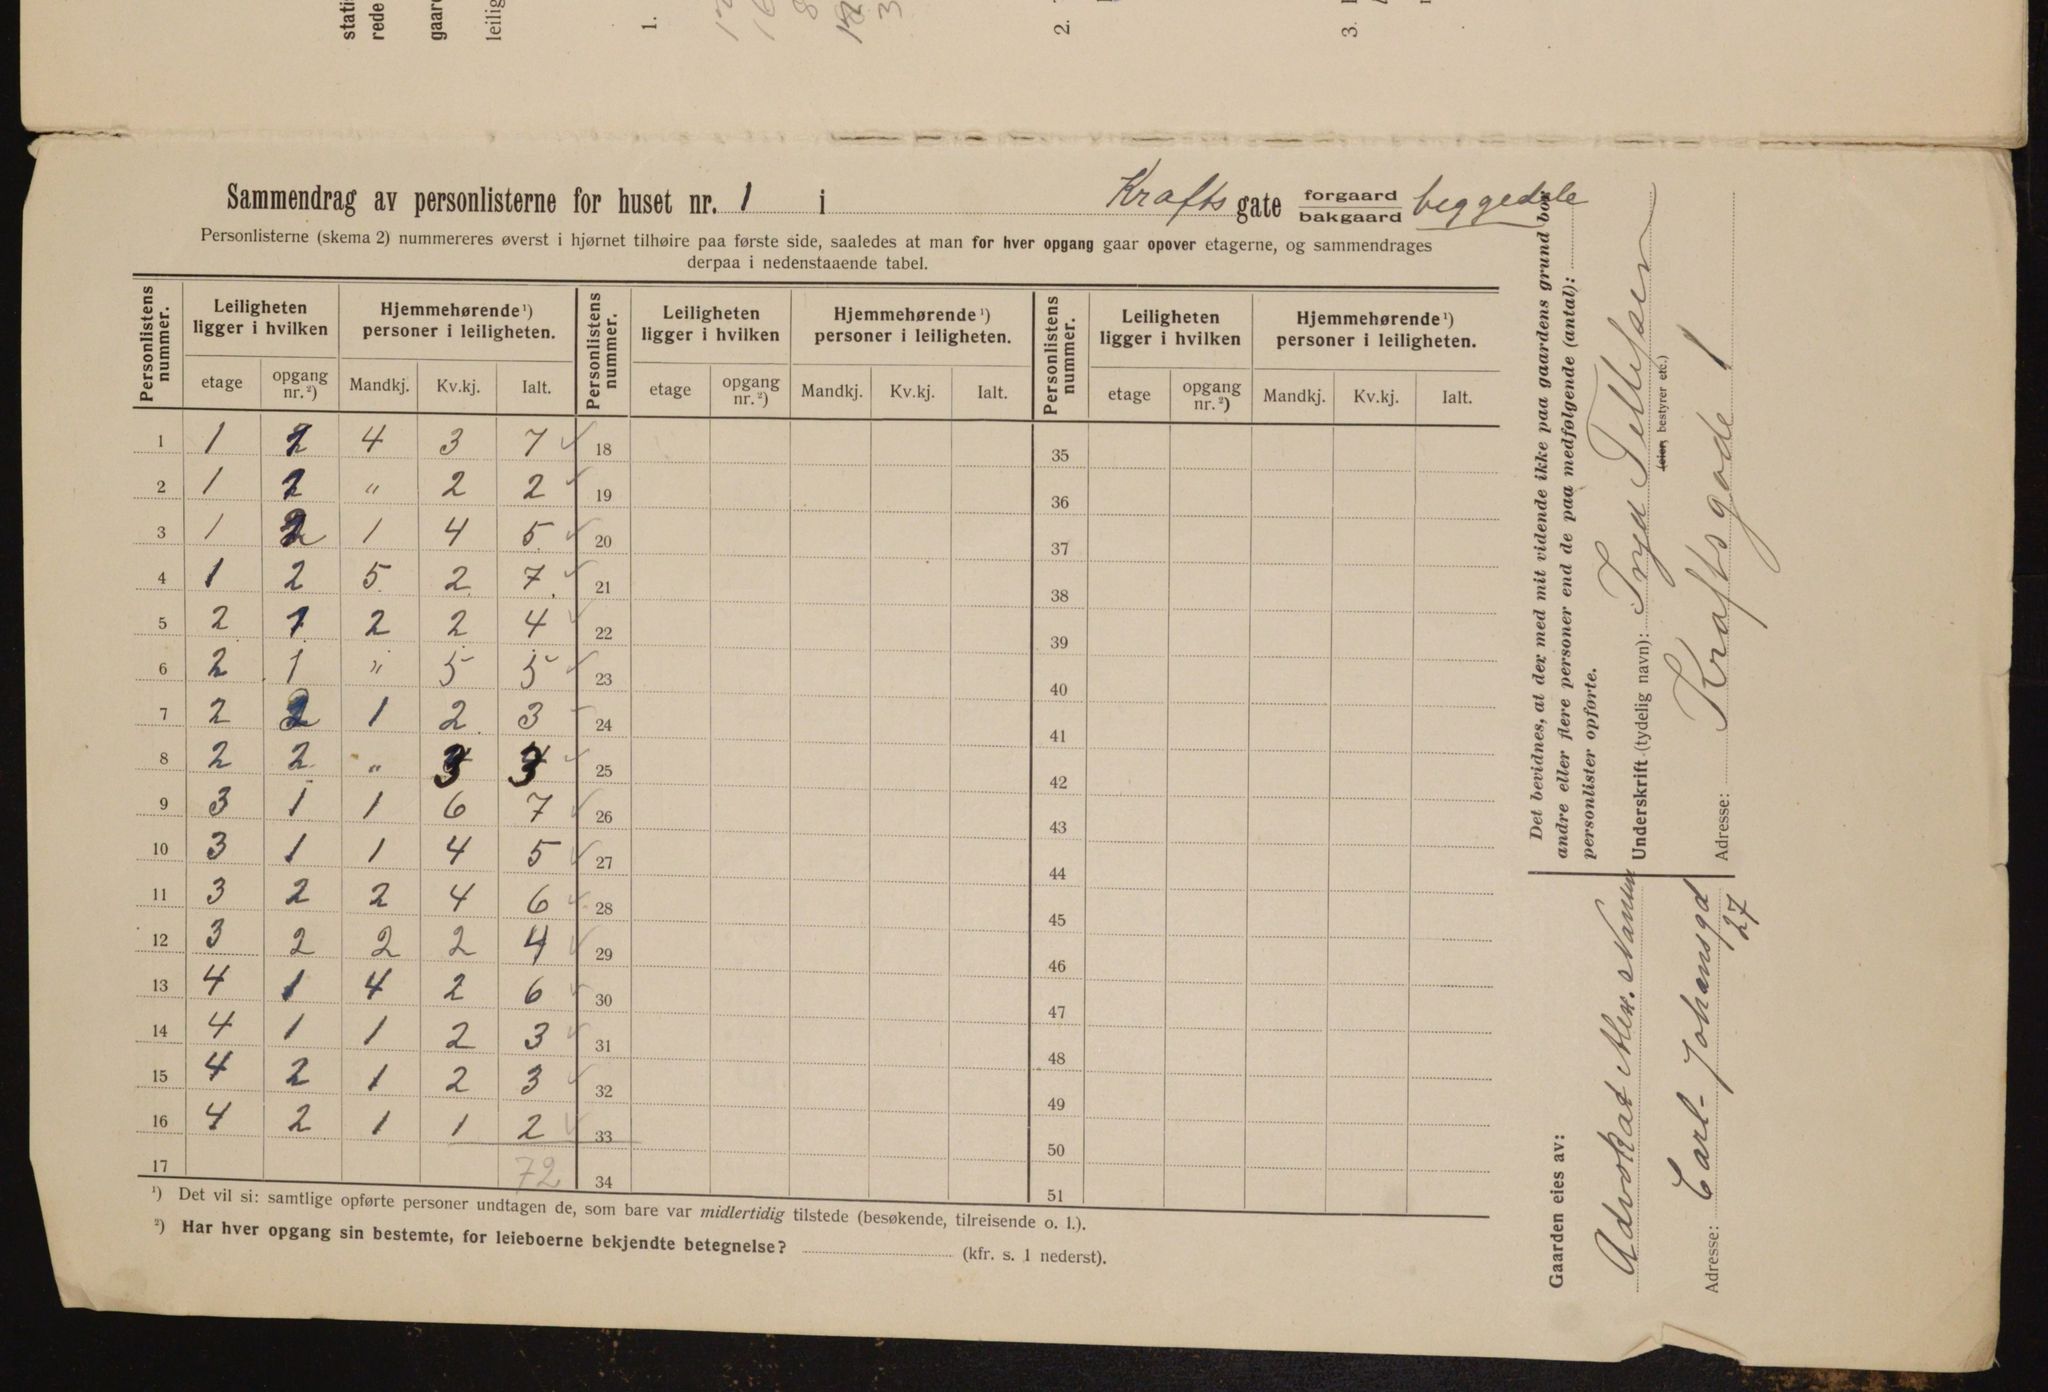 Sammendrag av personlisterne for huset nr. 1 i Krafts gate forgaard bakgaard beggedele
Personlisterne (skema 2) nummereres øverst i hjørnet tilhøire paa første side, saaledes at man for hver opgang gaar opover etagerne, og sammendrages
derpaa i nedenstaaende tabel.
Personlistens nummer. Leiligheten ligger i hvilken Hjemmehørende¹) personer i leiligheten. Personlistens nummer. Leiligheten ligger i hvilken Hjemmehørende¹) personer i leiligheten. Personlistens nummer. Leiligheten ligger i hvilken Hjemmehørende¹) personer i leiligheten.
etage opgang nr.²) Mandkj. Kv.kj. Ialt. etage opgang nr.²) Mandkj. Kv.kj. Ialt. etage opgang nr.²) Mandkj. Kv.kj. Ialt.
1 1 2 4 3 7 18 35
2 1 2 " 2 2 19 36
3 1 2 1 4 5 20 37
4 1 2 5 2 7 21 38
5 2 1 2 2 4 22 39
6 2 1 " 5 5 23 40
7 2 2 1 2 3 24 41
8 2 2 " 3 3 25 42
9 3 1 1 6 7 26 43
10 3 1 1 4 5 27 44
11 3 2 2 4 6 28 45
12 3 2 2 2 4 29 46
13 4 1 4 2 6 30 47
14 4 1 1 2 3 31 48
15 4 2 1 2 3 32 49
16 4 2 1 1 2 33 50
17 72 34 51
¹) Det vil si: samtlige opførte personer undtagen de, som bare var midlertidig tilstede (besøkende, tilreisende o. l.).
²) Har hver opgang sin bestemte, for leieboerne bekjendte betegnelse? (kfr. s. 1 nederst).
Det bevidnes, at der med mit vidende ikke paa gaardens grund bor
andre eller flere personer end de paa medfølgende (antal):
personlister opførte.
Underskrift (tydelig navn): Tellefsen
(eier, bestyrer etc.)
Adresse: Kraftsgade 1
Gaarden eies av:
Advokat Alex.
Adresse: Carl-Johansgd
27
1.
2.
3.